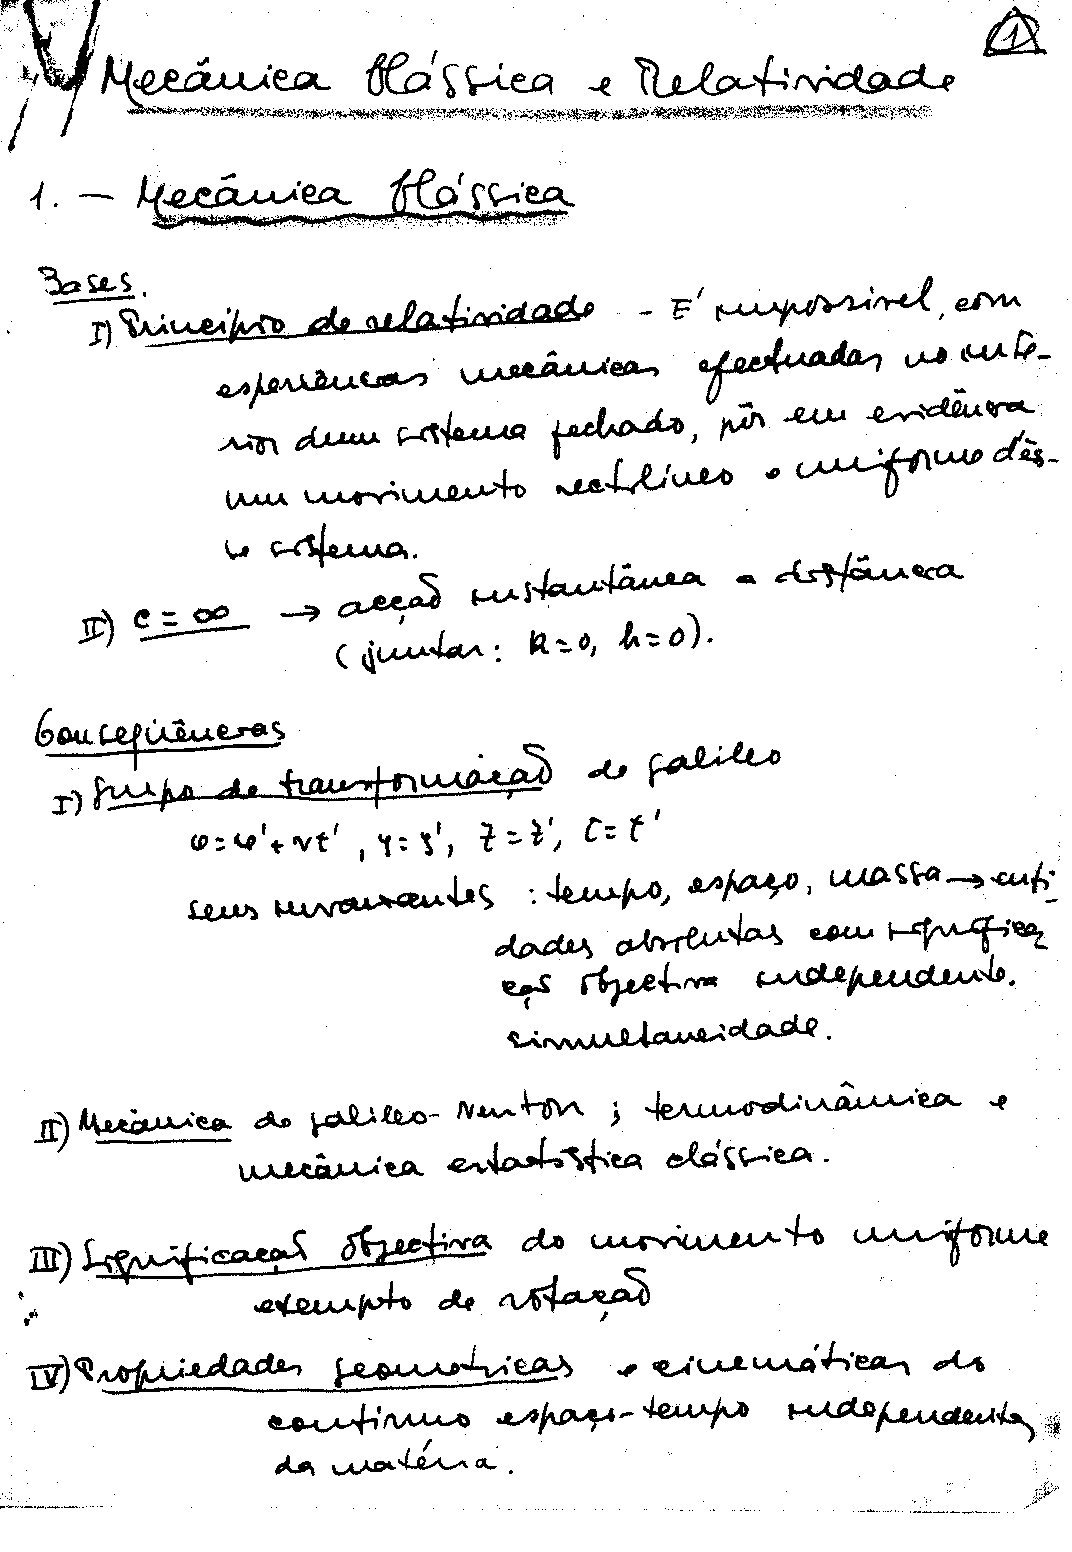 1
Mecânica Clássica e Relatividade
1. – Mecânica Clássica
Bases.
I) Princípio de relatividade – É impossível, com
experiências mecânicas efectuadas no inte-
rior dum sistema fechado, pôr em evidência
um movimento rectilíneo e uniforme dês-
te sistema.
II) c = ∞ → acção instantânea a distância
(juntar: k=0, h=0).
Conseqüências
I) Grupo de transformação de Galileo
x=x'+vt', y=y', z=z', t=t'
seus invariantes : tempo, espaço, massa → enti-
dades absolutas com significa-
ção objectiva independente.
simultaneidade.
II) Mecânica de Galileo-Newton ; termodinâmica e
mecânica estatística clássica.
III) Significação objectiva do movimento uniforme
exempto de rotação
IV) Propriedades geometricas e cinemáticas do
contínuo espaço-tempo independentes
da matéria.